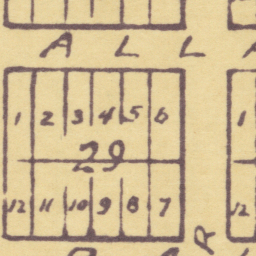 A L L
1 2 3 4 5 6 1
29
12 11 10 9 8 7 12
R